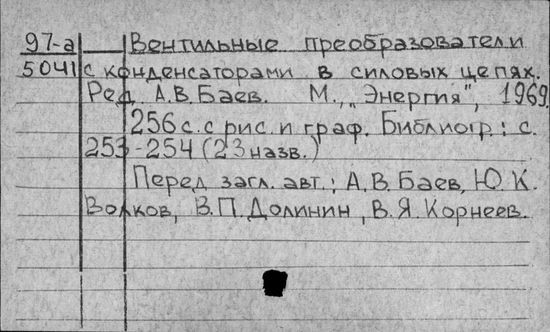 97-а Вентильные преобразователи
5041 с конденсаторами в силовых цепях.
Ред. А.В.Баев. М., „Энергия", 1969.
256с. с рис. и граф. Библиогр: с.
253-254 (23 назв.)
Перед загл. авт.: А.В.Баев, Ю.К.
Волков, В.П.Долинин, В.Я.Корнеев.